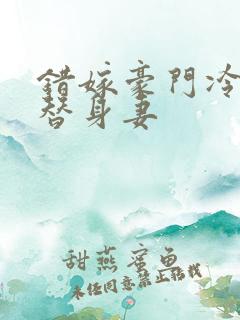 錯嫁豪門冷
替身妻
甜燕蜜魚
未经同意禁止转载